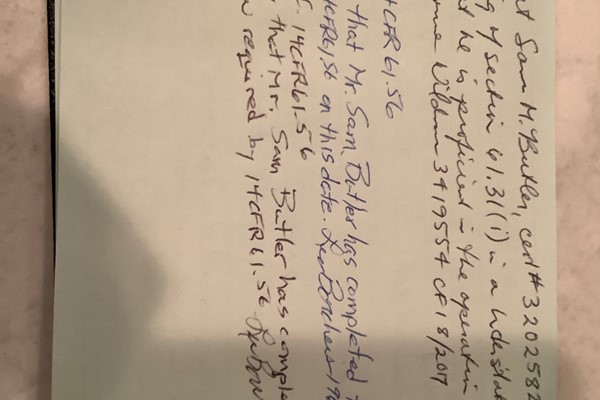 Sam M. Butler, cert# 3202582
of section 61.31(i) in a
he is proficient in the operation
3419554 CFI 8/2017
CFR 61.56
that Mr. Sam Butler has completed
14CFR61.56 on this date.
14CFR61.56
that Mr. Sam Butler has comple
required by 14CFR61.56